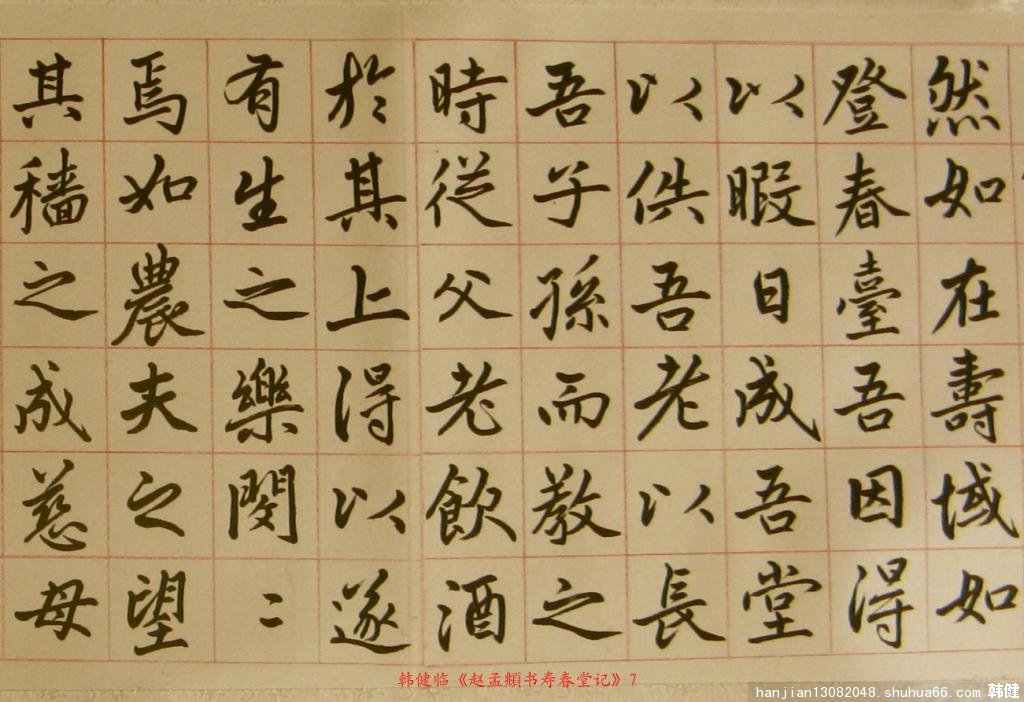 然如在壽域如
登春臺吾因得
以暇日成吾堂
以供吾老以長
吾子孫而教之
時從父老飲酒
於其上得以遂
有生之樂閔〻
焉如農夫之望
其穡之成慈母
韩健临《赵孟頫书寿春堂记》7
hanjian13082048.shuhua66.com 韩健